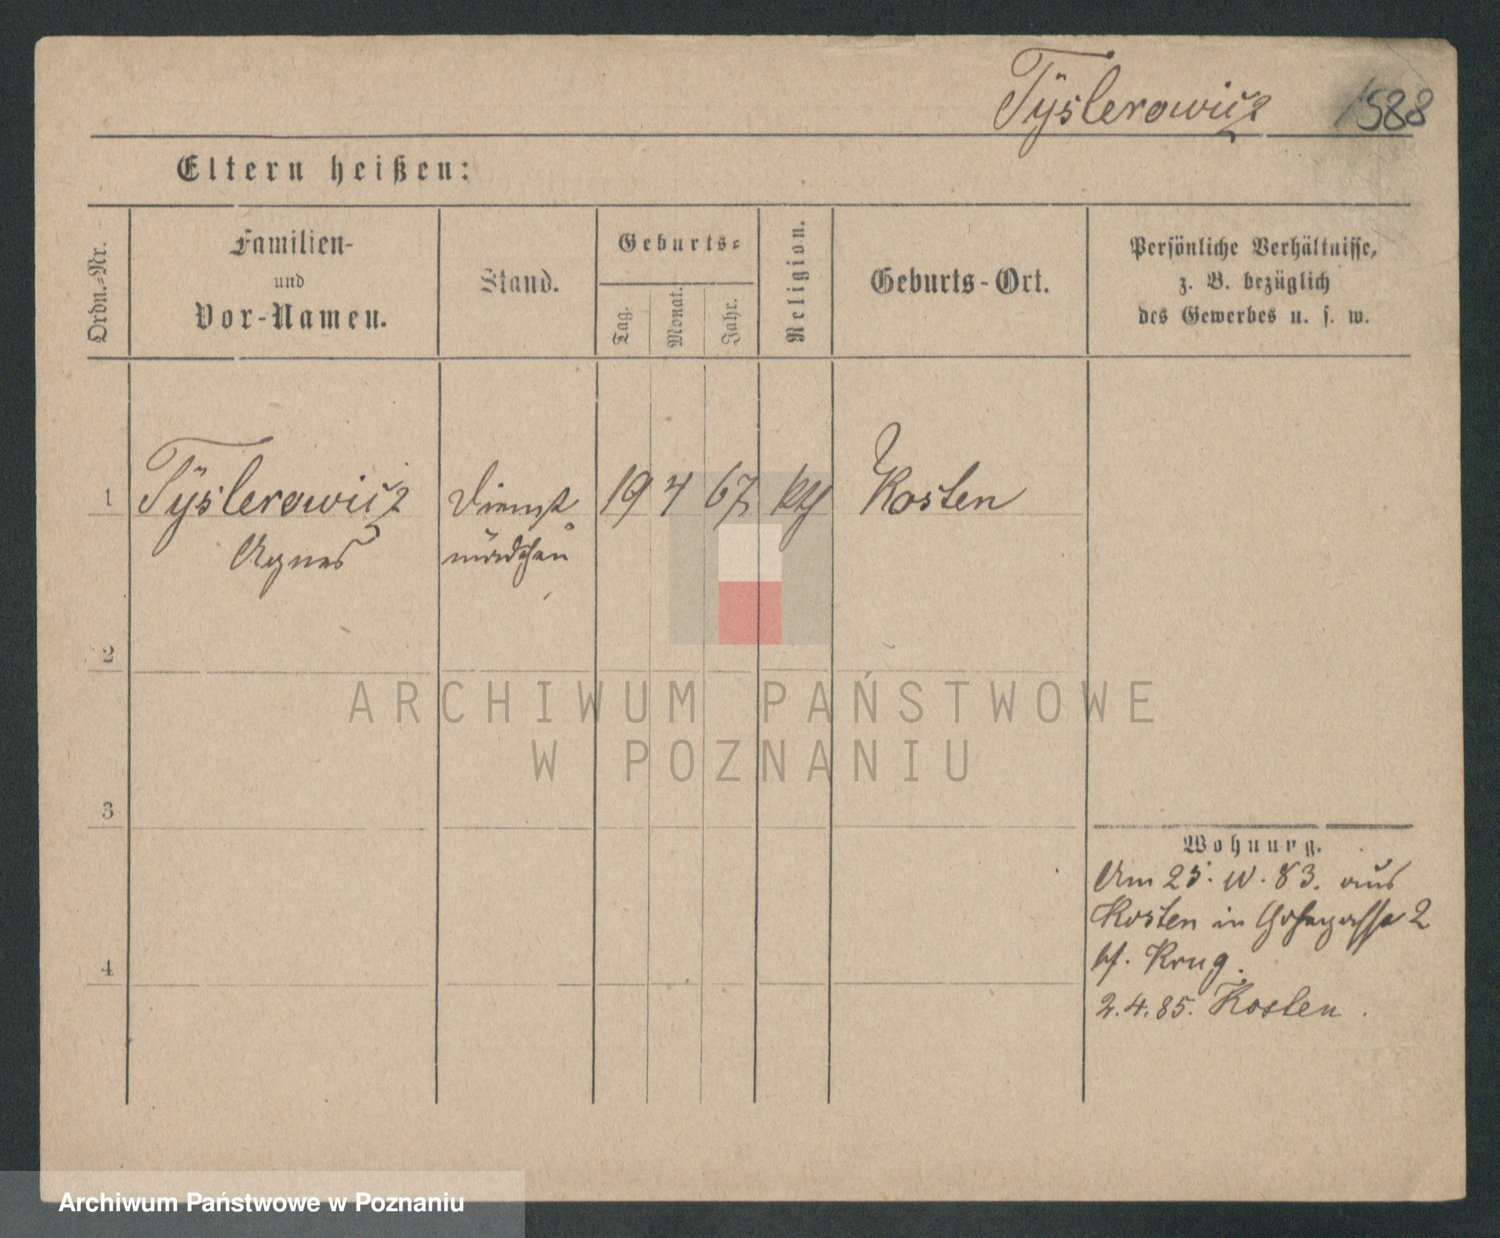 Tÿslerowicz 1588
Eltern heißen:
Ordn.-Nr.
Familien-
und
Vor-Namen.
Stand.
Geburts-
Tag.
Monat.
Jahr.
Religion.
Geburts-Ort.
Persönliche Verhältnisse,
z. B. bezüglich
des Gewerbes u. s. w.
1 Tÿslerowicz Dienst 19 4 67 Kosten
Agnes mädchen
2
3
4
Wohnung.
Am 25. 83. aus
Kosten in 2
Krug.
2.4.85. Kosten.
ARCHIWUM PAŃSTWOWE
W POZNANIU
Archiwum Państwowe w Poznaniu